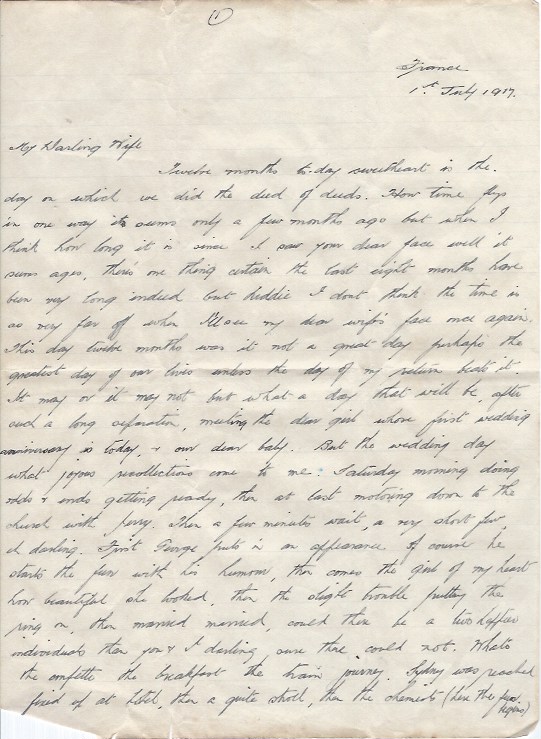 (1)
France
1st July 1917.
My Darling Wife
Twelve months to-day sweetheart is the
day on which we did the deed of deeds. How time flys
in one way it seems only a few months ago but when I
think how long it is since I saw your dear face well it
seems ages, there's one thing certain the last eight months have
been very long indeed but kiddie I dont think the time is
so very far off when I'll see my dear wife's face once again.
This day twelve months was it not a great day perhaps the
greatest day of our lives unless the day of my return beats it.
It may or it may not but what a day that will be, after
such a long separation, meeting the dear girl whose first wedding
anniversary is today, & our dear baby. But the wedding day
what joyous recollections come to me. Saturday morning doing
odds & ends getting ready, then at last motoring down to the
church with Perry. Then a few minutes wait, a very short few,
eh darling. First George puts in an appearance. Of course he
starts the fun with his humour, then comes the girl of my heart
how beautiful she looked, then the slight trouble putting the
ring on, then married married, could there be a two happier
individuals than you & I darling, sure there could not. Whats
the confetti the breakfast the train journey. Sydney was reached
fixed up at Hotel, then a quite stroll, then the chemists (here the fun
begins)